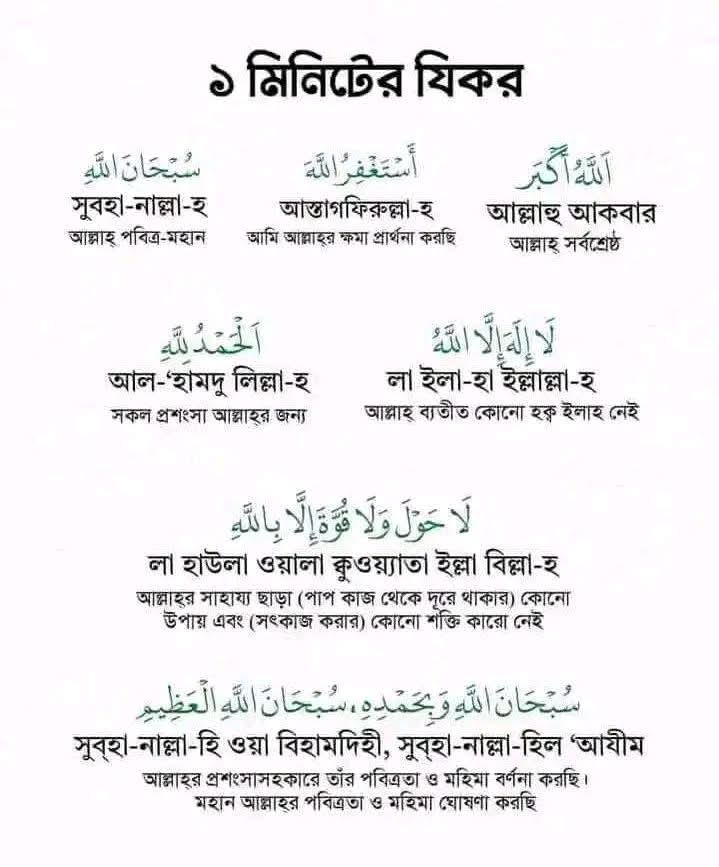 ১ মিনিটের যিকর
سُبْحَانَ اللَّهِ
সুবহা-নাল্লা-হ
আল্লাহ্ পবিত্র-মহান
أَسْتَغْفِرُ اللَّهَ
আস্তাগফিরুল্লা-হ
আমি আল্লাহ্‌র ক্ষমা প্রার্থনা করছি
اَللَّهُ أَكْبَر
আল্লাহু আকবার
আল্লাহ্ সর্বশ্রেষ্ঠ
اَلْحَمْدُ لِلَّهِ
আল-‘হামদু লিল্লা-হ
সকল প্রশংসা আল্লাহ্‌র জন্য
لَا إِلَهَ إِلَّا اللَّهُ
লা ইলা-হা ইল্লাল্লা-হ
আল্লাহ্ ব্যতীত কোনো হক্ব ইলাহ নেই
لَا حَوْلَ وَلَا قُوَّةَ إِلَّا بِاللَّهِ
লা হাউলা ওয়ালা ক্বুওয়্যাতা ইল্লা বিল্লা-হ
আল্লাহ্‌র সাহায্য ছাড়া (পাপ কাজ থেকে দূরে থাকার) কোনো
উপায় এবং (সৎকাজ করার) কোনো শক্তি কারো নেই
سُبْحَانَ اللَّهِ وَبِحَمْدِهِ، سُبْحَانَ اللَّهِ الْعَظِيمِ
সুব্‌হা-নাল্লা-হি ওয়া বিহামদিহী, সুব্‌হা-নাল্লা-হিল ‘আযীম
আল্লাহ্‌র প্রশংসাসহকারে তাঁর পবিত্রতা ও মহিমা বর্ণনা করছি।
মহান আল্লাহ্‌র পবিত্রতা ও মহিমা ঘোষণা করছি